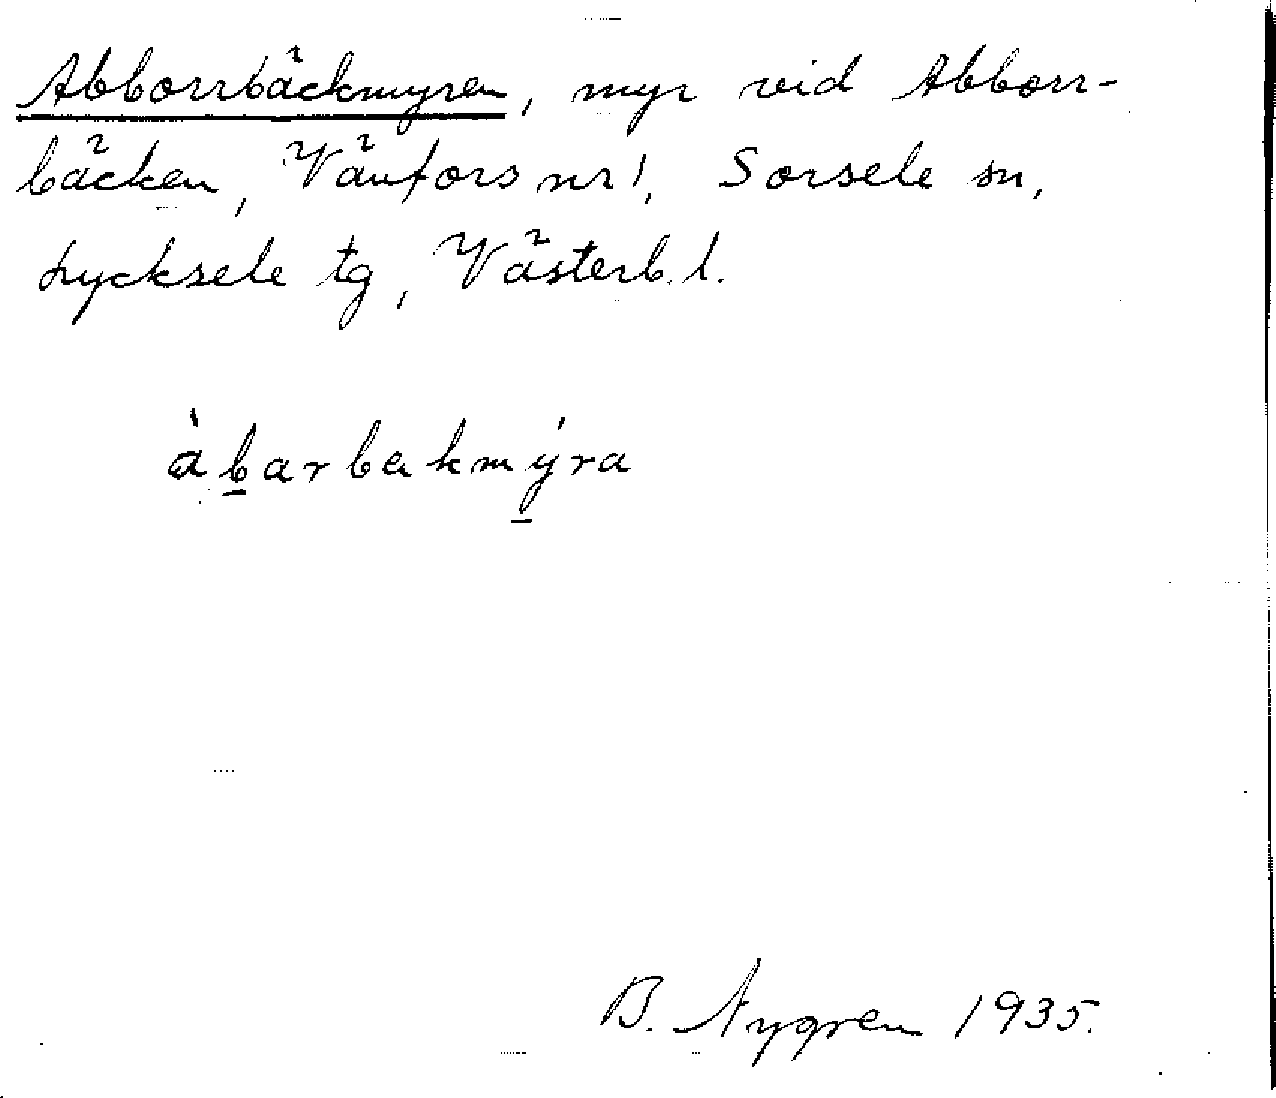 Abborrbäckmyren, myr vid Abborr-
bäcken, Vänfors nr 1, Sorsele sn,
Lycksele tg, Västerb. l.
àbarbækmýra
B. Nygren 1935.